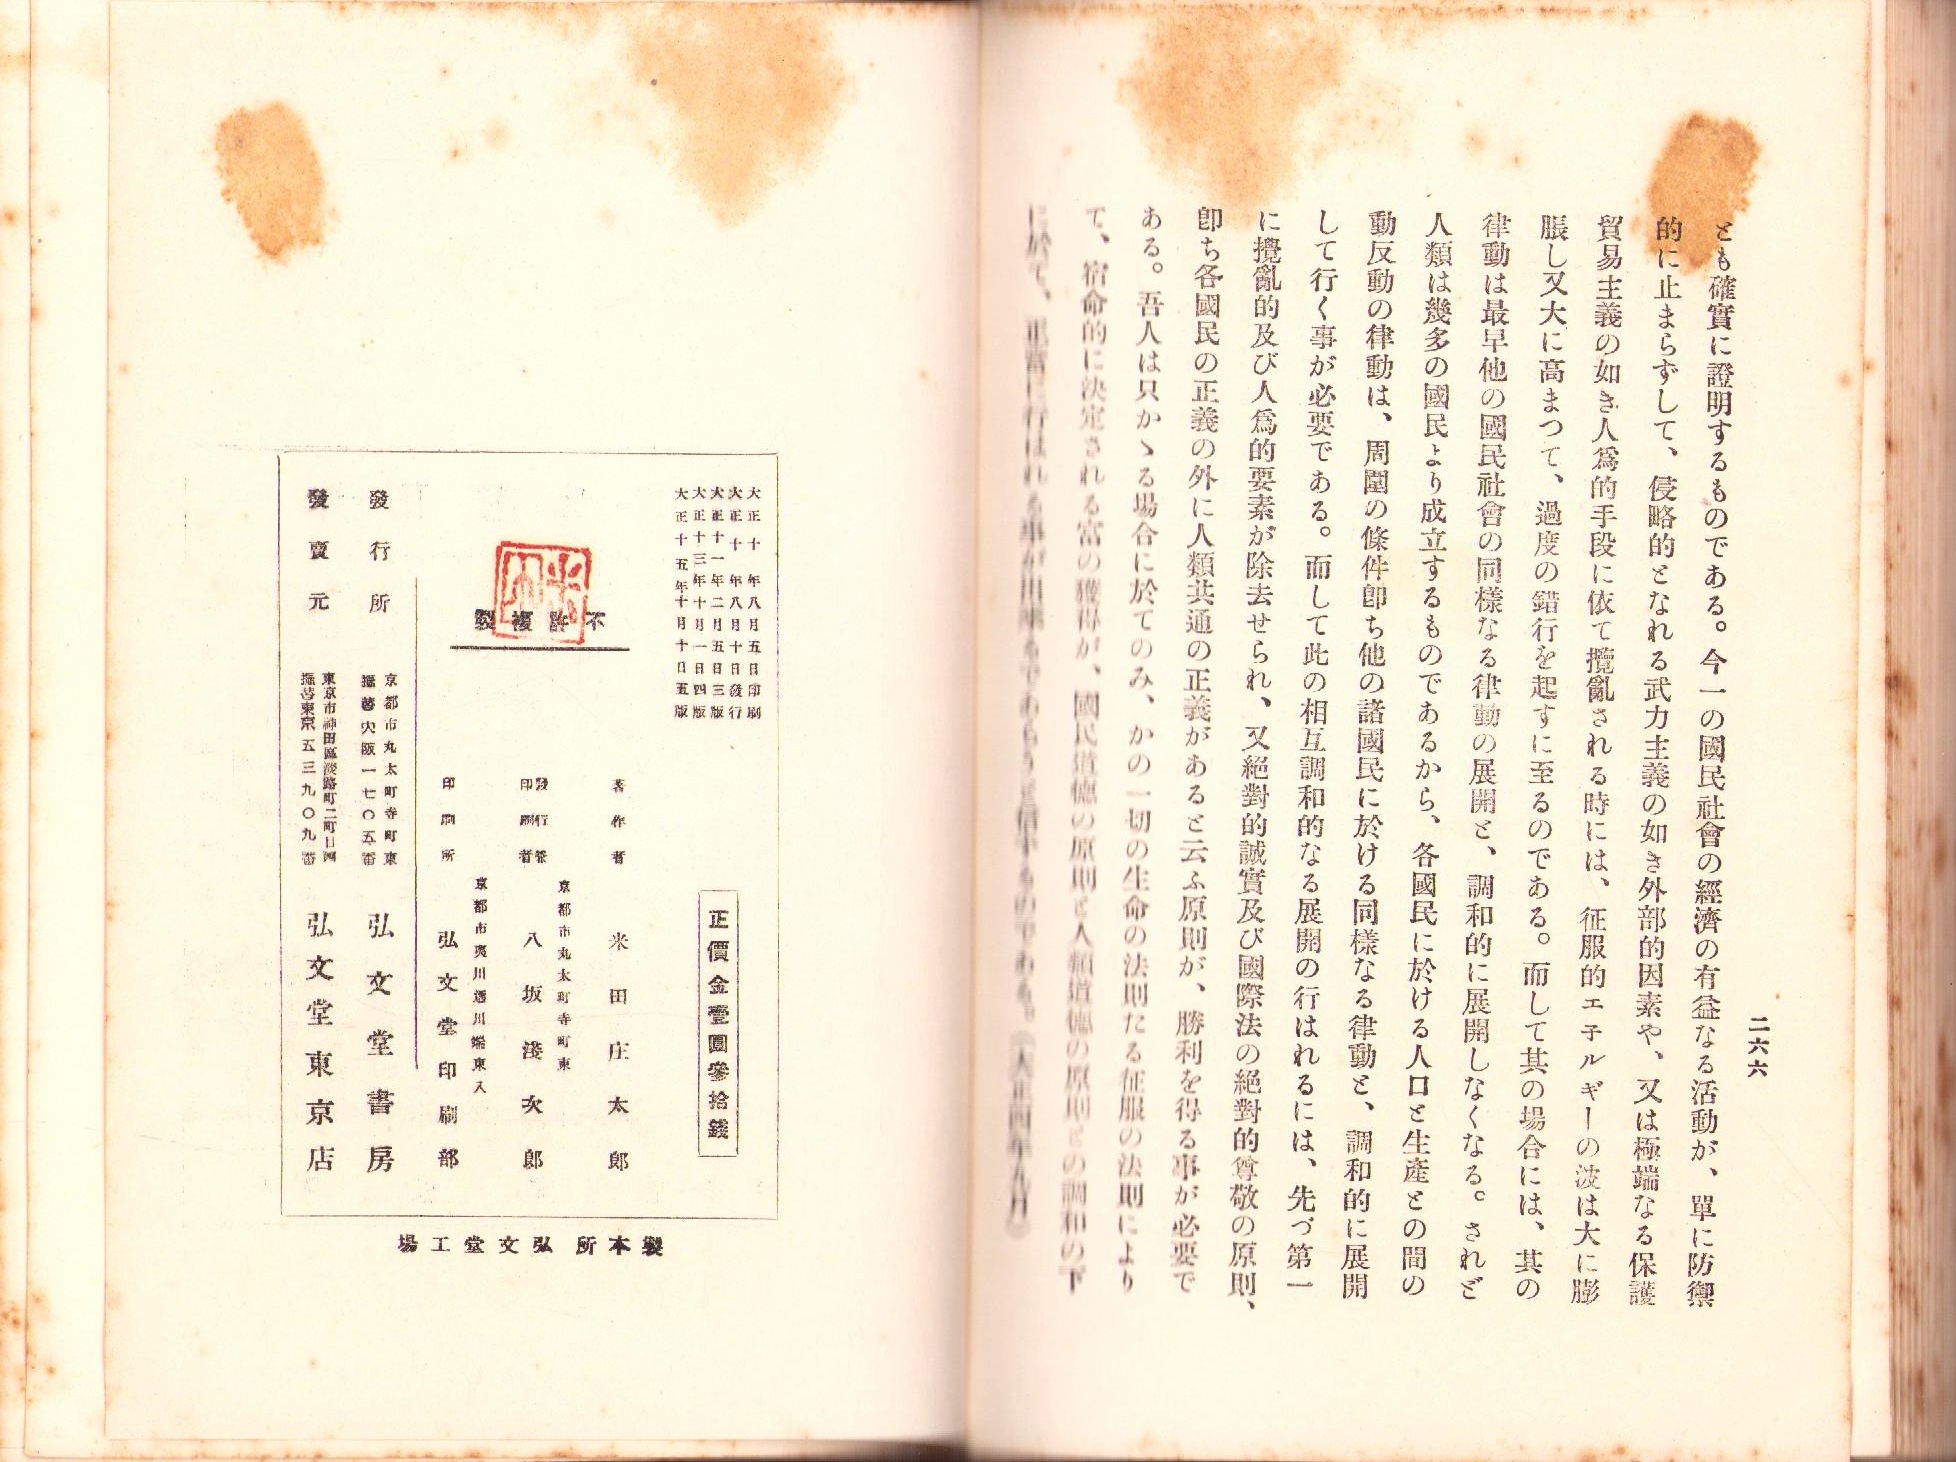 二六六
とも確實に證明するものである。今一の國民社會の經濟の有益なる活動が、單に防禦
的に止まらずして、侵略的となれる武力主義の如き外部的因素や、又は極端なる保護
貿易主義の如き人爲的手段に依て攪亂される時には、征服的エ子ルギーの波は大に膨
脹し又大に高まつて、過度の錯行を起すに至るのである。而して其の場合には、其の
律動は最早他の國民社會の同樣なる律動の展開と、調和的に展開しなくなる。されど
人類は幾多の國民より成立するものであるから、各國民に於ける人口と生產との間の
動反動の律動は、周圍の條件卽ち他の諸國民に於ける同樣なる律動と、調和的に展開
して行く事が必要である。而して此の相互調和的なる展開の行はれるには、先づ第一
に攪亂的及び人爲的要素が除去せられ、又絕對的誠實及び國際法の絕對的尊敬の原則、
卽ち各國民の正義の外に人類共通の正義があると云ふ原則が、勝利を得る事が必要で
ある。吾人は只かゝる場合に於てのみ、かの一切の生命の法則たる征服の法則により
て、宿命的に決定される富の獲得が、國民道德の原則と人類道德の原則との調和の下
に於て、正當に行はれる事が出來るであらうと信ずるものである。（大正四年九月）
大正十年八月五日印刷
大正十年八月十日發行
大正十一年二月五日三版
大正十三年十月一日四版
大正十五年十月十日五版
正價金壹圓參拾錢
不許複製
著作者 米田庄太郎
京都市丸太町寺町東
發行者
印刷者 八坂淺次郎
京都市夷川通川端東入
印刷所 弘文堂印刷部
發行所 京都市丸太町寺町東
振替大阪一七〇五番 弘文堂書房
發賣元 東京市神田區淡路町二町目四
振替東京五三九〇九番 弘文堂東京店
製本所 弘文堂工場